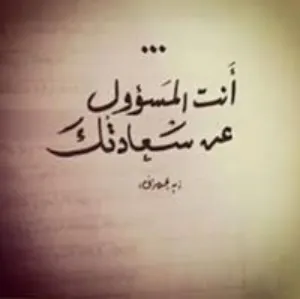 ...
أَنت المَسؤول
عن سَعادتك